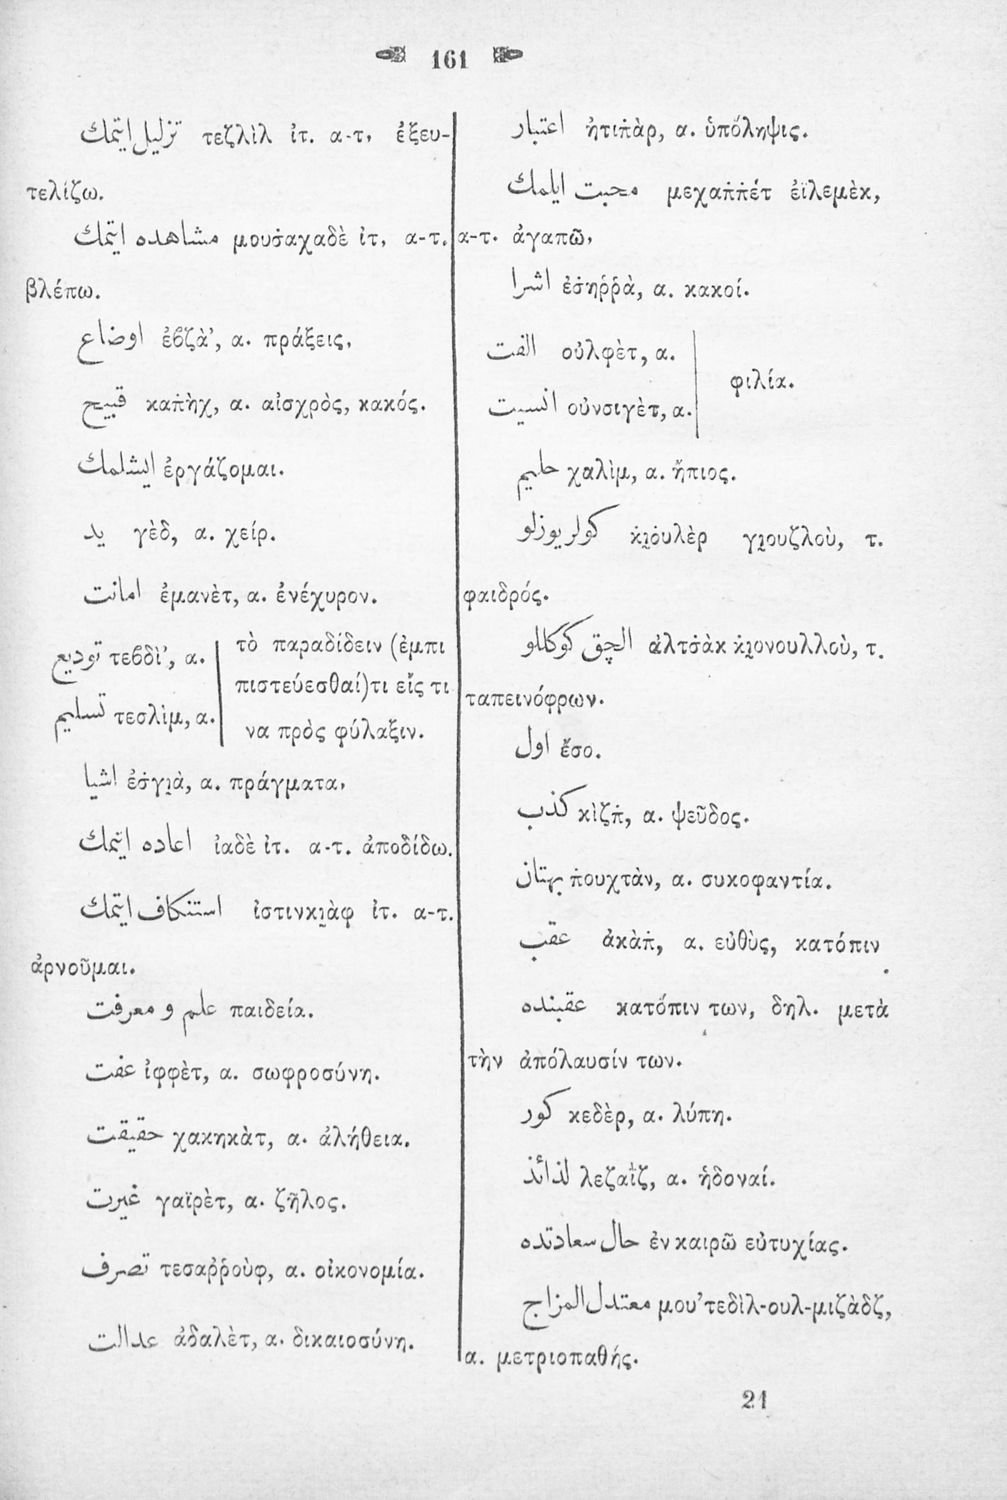 161
تزليل ايتمك τεζλὶλ ἰτ. α-τ. ἐξευ-
τελίζω.
مشاهده ايتمك μουṡαχαδὲ ἰτ, α-τ.
βλέπω.
اوضاع ἐβζὰ', α. πράξεις.
قبيح καṗὴχ, α. αἰσχρὸς, κακός.
ايشلمك ἐργάζομαι.
يد γὲδ, α. χείρ.
امانت ἐμανὲτ, α. ἐνέχυρον.
توديع τεβδὶ', α. τὸ παραδίδειν (ἐμπι
πιστεύεσθαί)τι εἴς τι
تسليم τεσλὶμ, α. να πρὸς φύλαξιν.
اشيا ἐṡγι̰ὰ, α. πράγματα.
اعاده ايتمك ἰαδὲ ἰτ. α-τ. ἀποδίδω.
استنكاف ايتمك ἰστινκι̰ὰφ ἰτ. α-τ.
ἀρνοῦμαι.
علم و معرفت παιδεία.
عفت ἰφφὲτ, α. σωφροσύνη.
حقيقت χακηκὰτ, α. ἀλήθεια.
غيرت γαϊρὲτ, α. ζῆλος.
تصرف τεσαῤῥοὺφ, α. οἰκονομία.
عدالت ἀδαλὲτ, α. δικαιοσύνη.
اعتبار ἠτιṗὰρ, α. ὑπόληψις.
محبت ايلمك μεχαṗṗέτ ἐϊλεμὲκ,
α-τ. ἀγαπῶ,
اشرا ἐṡηῤῥὰ, α. κακοί.
الفت οὐλφὲτ, α.
φιλία.
انسيت οὐνσιγὲτ, α.
حليم χαλὶμ, α. ἤπιος.
كولر يوزلو κ̇ι̰ὀυλὲρ γι̰ουζλοὺ, τ.
φαιδρός.
الچق كوكللو ἀλτṡὰκ κ̇ι̰ονουλλοὺ, τ.
ταπεινόφρων.
اول ἔσο.
كذب κὶζṗ, α. ψεῦδος.
بهتان ṗουχτὰν, α. συκοφαντία.
عقب ἀκὰṗ, α. εὐθὺς, κατόπιν
عقبنده κατόπιν των, δηλ. μετὰ
τὴν ἀπόλαυσίν των.
كور κεδὲρ, α. λύπη.
لذائذ λεζαῒζ, α. ἡδοναί.
حال سعادتده ἐν καιρῶ εὐτυχίας.
معتدل المزاج μου'τεδὶλ-ουλ-μιζὰδζ,
α. μετριοπαθής.
21